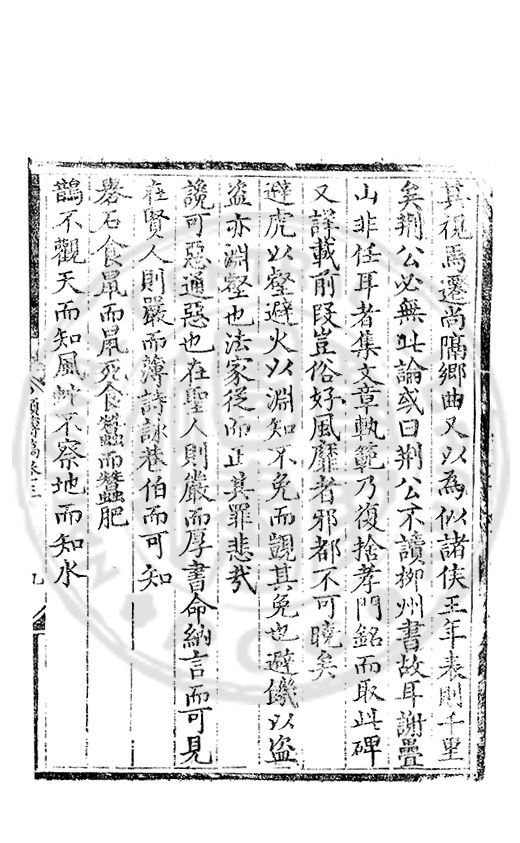 其視馬遷尚隔鄉曲又以為似諸侯王年表則千里
矣荆公必無此論或曰荆公不讀柳州書故耳謝疊
山非任耳者集文章軌範乃復捨孝門銘而取此碑
又詳載前段豈俗好風靡者邪都不可曉矣
避虎以壑避火以淵知不免而覬其免也避饑以盗
盗亦淵壑也法家從而正其罪悲哉
讒可惡通惡也在聖人則嚴而厚書命納言而可見
在賢人則嚴而薄詩詠巷伯而可知
礜石食鼠而鼠死食蠶而蠶肥
鵲不觀天而知風不察地而知水
稿卷十三
九